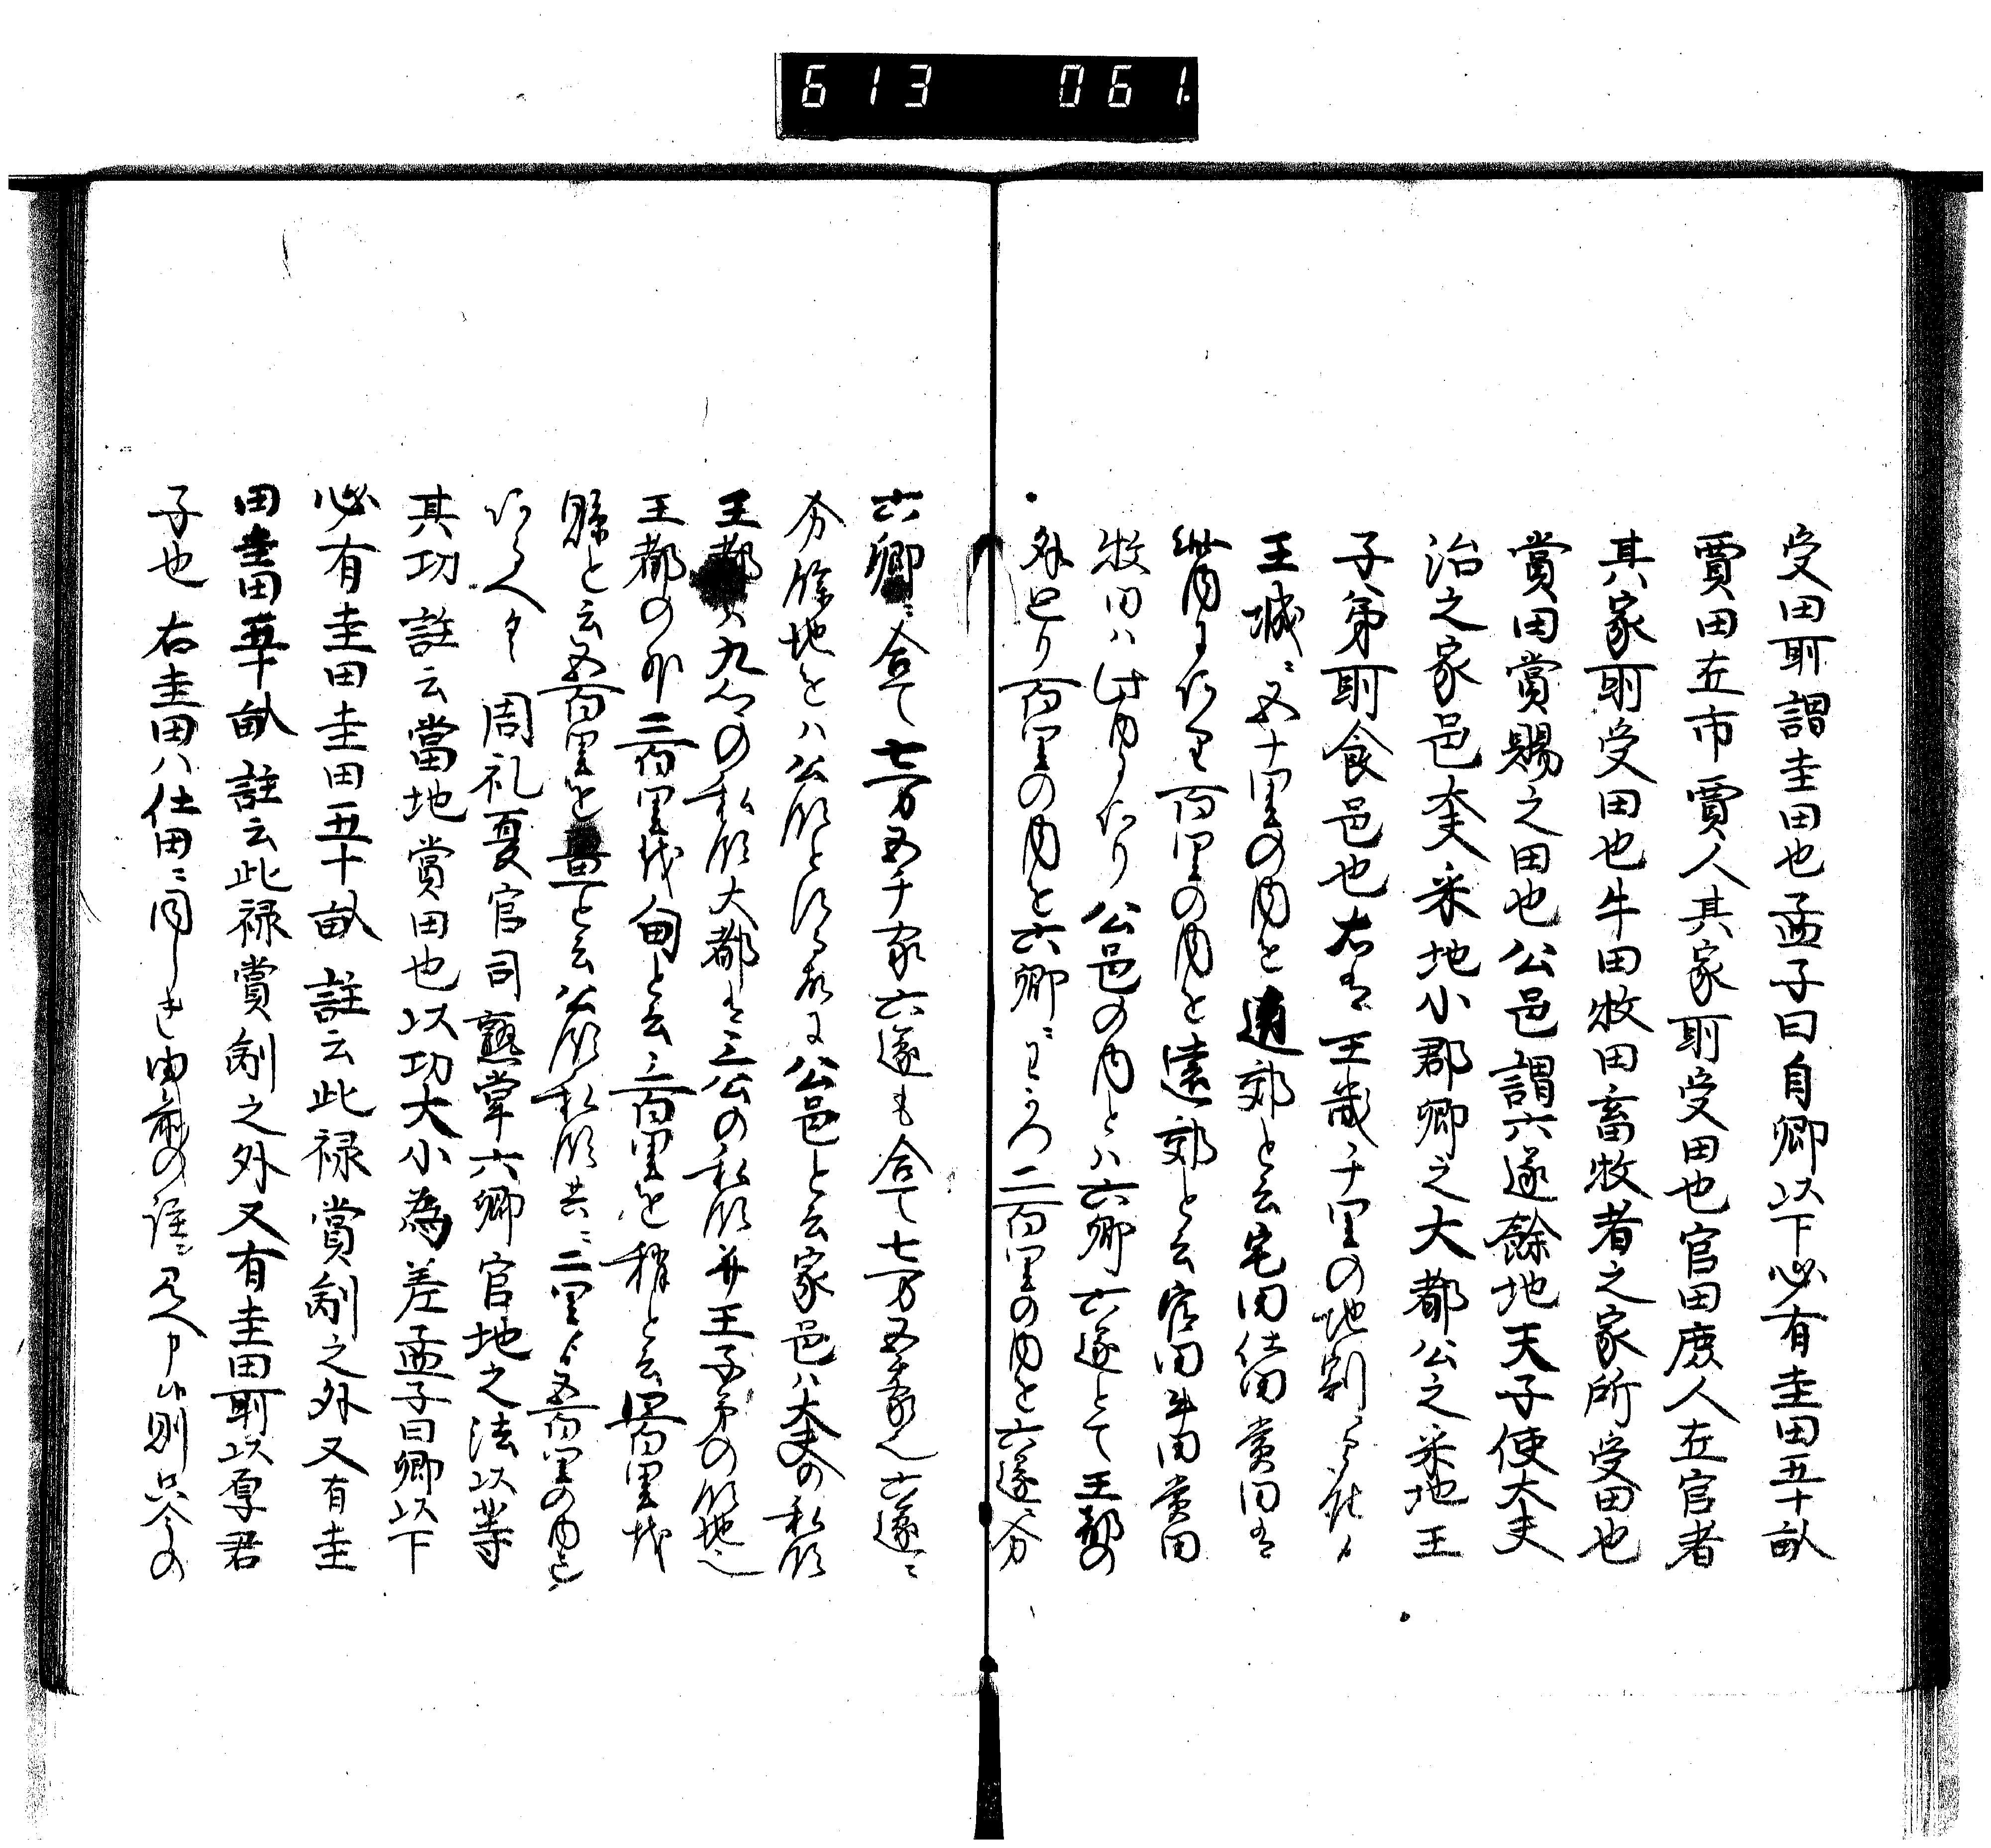 613 061
受田所謂圭田也孟子曰自卿以下必有圭田五十畝
賈田在市賈人其家所受田也官田庶人在官者
其家所受田也牛田牧田畜牧者之家所受田也
賞田賞賜之田也公邑謂六遂餘地天子使大夫
治之家邑大夫采地小郡卿之大都公之采地王
子弟所食邑也右者王畿千里の地割
王城ニ五十里の内を近郊と云宅田仕田賞田者
此内に 百里の内を遠郊と云官田牛田賞田
牧田ハ此内にあり公邑の内とハ六卿六遂とて王都の
外より百里の内を六卿ニわかつ二百里の内を六遂ニ分
六卿ニ合て七万五千家六遂も合て七万五千家也六遂ニ
分餘地をハ公領と 故に公邑と云家邑ハ大夫の私領
王都 九 の私領大都者三公の私領并王子弟の領地也
王都の外二百里を甸と云三百里を稍と云四百里を
縣と云五百里を畺と云公領私領共ニ二里より五百里の内也
周礼夏官司勲掌六卿官地之法以等
其功 註云當地賞田也以功大小為差孟子曰卿以下
必有圭田圭田五十畝 註云此禄賞制之外又有圭
田圭田五十畝 註云此禄賞制之外又有圭田所以厚君
子也 右圭田ハ仕田ニ同しき由前の註ニ見へ申候則只今の